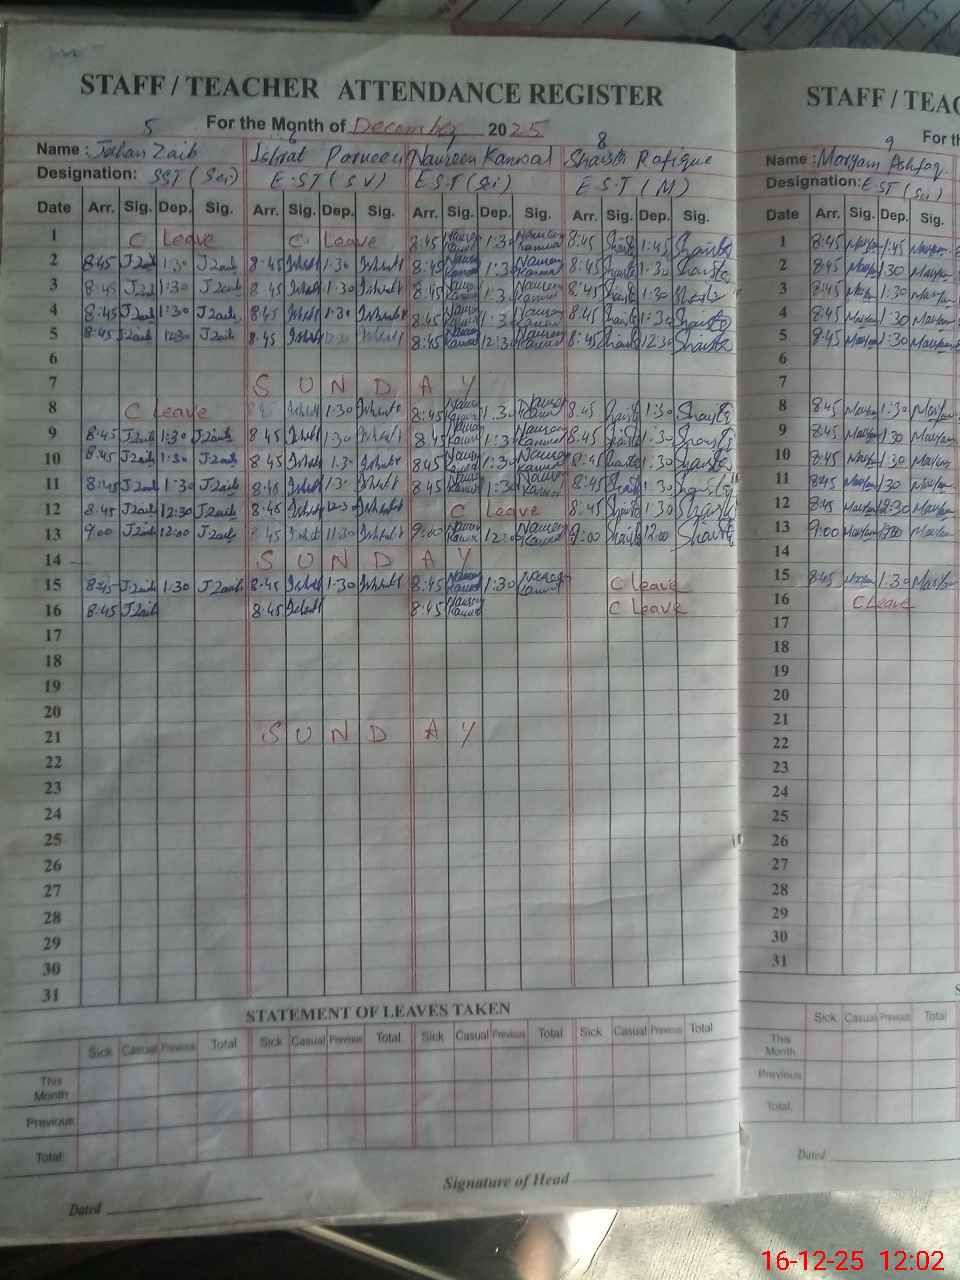 STAFF / TEACHER ATTENDANCE REGISTER
For the Month of December 2025
5 6 7 8
Name : Jahan Zaib Ishrat Parveen Naureen Kanwal Shaista Rafique
Designation: SST (Sci) E.ST (SV) E.S.T (Sci) E.S.T (M)
Date Arr. Sig. Dep. Sig. Arr. Sig. Dep. Sig. Arr. Sig. Dep. Sig. Arr. Sig. Dep. Sig.
1 C Leave C Leave 8:45 Naureen Kanwal 1:30 Naureen Kanwal 8:45 Shaista 1:45 Shaista
2 8:45 J Zaib 1:30 J Zaib 8:45 Ishrat 1:30 Ishrat 8:45 Naureen Kanwal 1:30 Naureen Kanwal 8:45 Shaista 1:30 Shaista
3 8:45 J Zaib 1:30 J Zaib 8:45 Ishrat 1:30 Ishrat 8:45 Naureen Kanwal 1:30 Naureen Kanwal 8:45 Shaista 1:30 Shaista
4 8:45 J Zaib 1:30 J Zaib 8:45 Ishrat 1:30 Ishrat 8:45 Naureen Kanwal 1:30 Naureen Kanwal 8:45 Shaista 1:30 Shaista
5 8:45 J Zaib 12:30 J Zaib 8:45 Ishrat 12:30 Ishrat 8:45 Naureen Kanwal 12:30 Naureen Kanwal 8:45 Shaista 12:30 Shaista
6
7 S U N D A Y
8 C Leave 8:45 Ishrat 1:30 Ishrat 8:45 Naureen Kanwal 1:30 Naureen Kanwal 8:45 Shaista 1:30 Shaista
9 8:45 J Zaib 1:30 J Zaib 8:45 Ishrat 1:30 Ishrat 8:45 Naureen Kanwal 1:30 Naureen Kanwal 8:45 Shaista 1:30 Shaista
10 8:45 J Zaib 1:30 J Zaib 8:45 Ishrat 1:30 Ishrat 8:45 Naureen Kanwal 1:30 Naureen Kanwal 8:45 Shaista 1:30 Shaista
11 8:45 J Zaib 1:30 J Zaib 8:45 Ishrat 1:30 Ishrat 8:45 Naureen Kanwal 1:30 Naureen Kanwal 8:45 Shaista 1:30 Shaista
12 8:45 J Zaib 12:30 J Zaib 8:45 Ishrat 12:30 Ishrat C Leave 8:45 Shaista 1:30 Shaista
13 9:00 J Zaib 12:00 J Zaib 8:45 Ishrat 11:30 Ishrat 9:00 Naureen Kanwal 12:00 Naureen Kanwal 9:00 Shaista 12:00 Shaista
14 S U N D A Y
15 8:45 J Zaib 1:30 J Zaib 8:45 Ishrat 1:30 Ishrat 8:45 Naureen Kanwal 1:30 Naureen Kanwal C Leave
16 8:45 J Zaib 8:45 Ishrat 8:45 Naureen Kanwal C Leave
17
18
19
20
21 S U N D A Y
22
23
24
25
26
27
28
29
30
31
STATEMENT OF LEAVES TAKEN
Sick Casual Previous Total Sick Casual Previous Total Sick Casual Previous Total Sick Casual Previous Total
This Month
Previous
Total
Dated
Signature of Head
STAFF / TEAC
For th
9
Name : Maryam Ashfaq
Designation: E ST (Sci)
Date Arr. Sig. Dep. Sig.
1 8:45 Maryam 1:45 Maryam
2 8:45 Maryam 1:30 Maryam
3 8:45 Maryam 1:30 Maryam
4 8:45 Maryam 1:30 Maryam
5 8:45 Maryam 1:30 Maryam
6
7
8 8:45 Maryam 1:30 Maryam
9 8:45 Maryam 1:30 Maryam
10 8:45 Maryam 1:30 Maryam
11 8:45 Maryam 1:30 Maryam
12 8:45 Maryam 12:30 Maryam
13 9:00 Maryam 12:00 Maryam
14
15 8:45 Maryam 1:30 Maryam
16 C Leave
17
18
19
20
21
22
23
24
25
26
27
28
29
30
31
S
Sick Casual Previous Total
This Month
Previous
Total
Dated
16-12-25 12:02